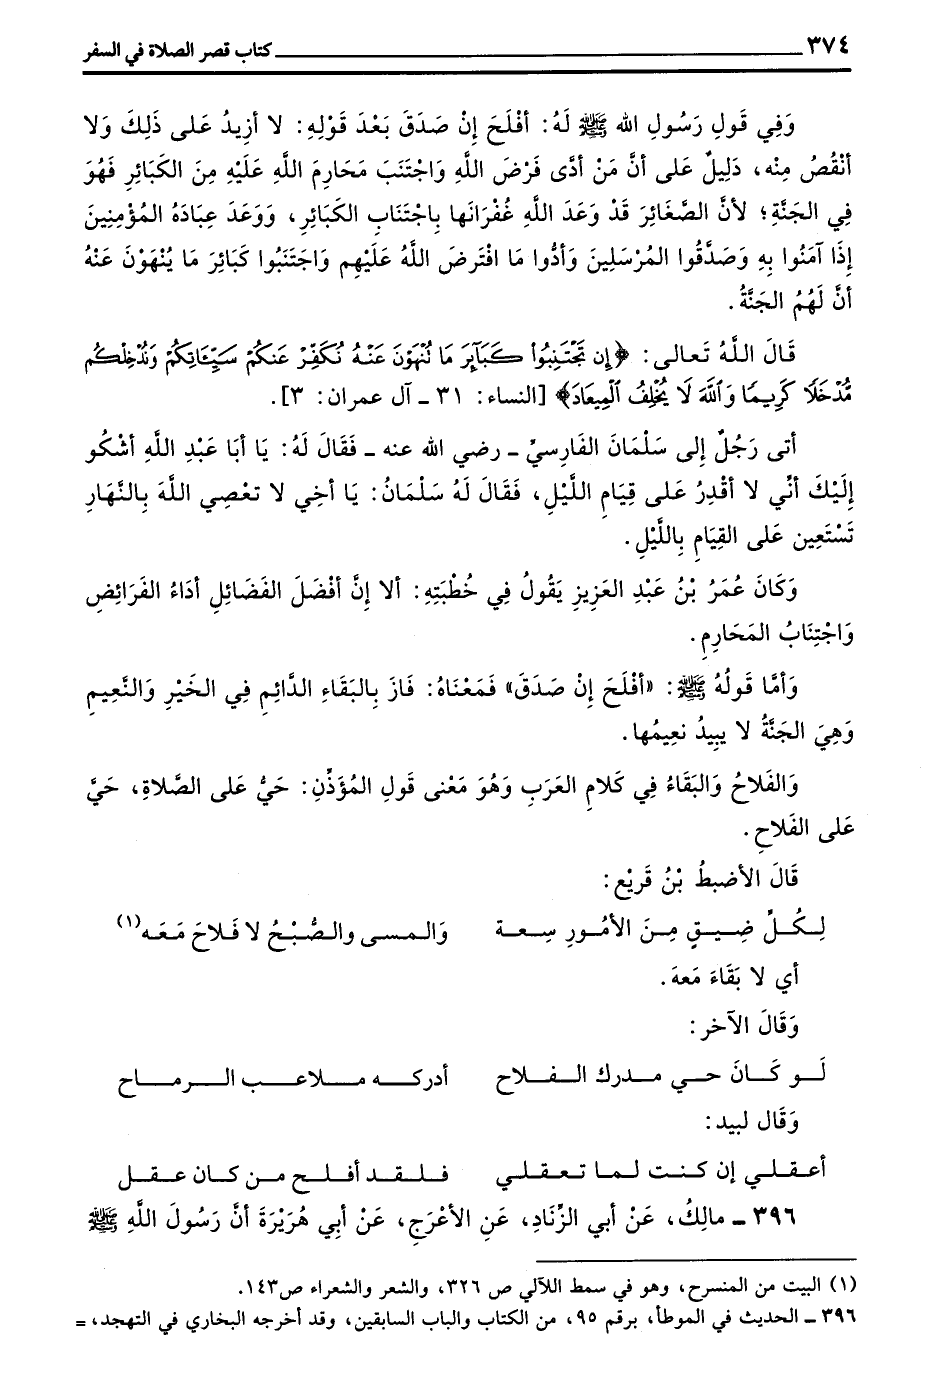 ٣٧٤ ــــــ كتاب قصر الصلاة في السفر
وَفِي قَولِ رَسُولِ الله ﷺ لَهُ: أفْلَحَ إِنْ صَدَقَ بَعْدَ قَوْلِهِ: لا أزِيدُ عَلى ذَلِكَ وَلا
أنْقُصُ مِنْه، دَلِيلٌ عَلى أنَّ مَنْ أدَّى فَرْضَ اللَّهِ وَاجْتَنَبَ مَحَارِمَ اللَّهِ عَلَيْهِ مِنَ الكَبَائِرِ فَهُوَ
فِي الجَنَّةِ؛ لأنَّ الصَّغَائَرَ قَدْ وَعَدَ اللَّهِ غُفْرَانَها بِاجْتِنَابِ الكَبَائِرِ، وَوَعَدَ عِبَادَهُ المُؤْمِنِينَ
إِذَا آمَنُوا بِهِ وَصَدَّقُوا المُرْسَلِينَ وَأدُّوا مَا افْتَرضَ اللَّهُ عَلَيْهِم وَاجَتَنَبُوا كَبَائِرَ مَا يُنْهَوْنَ عَنْهُ
أنَّ لَهُمُ الجَنَّةُ.
قَالَ اللَّهُ تَعالى: ﴿إِن تَجْتَنِبُواْ كَبَآئِرَ مَا نُنْهَوْنَ عَنْهُ نُكَفِّرْ عَنكُمْ سَيِّئَاتِكُمْ وَنُدْخِلْكُم
مُّدْخَلًا كَرِيمًا وَاللَّهَ لَا يُخْلِفُ الْمِيعَادَ﴾ [النساء: ٣١ ـ آل عمران: ٣].
أتى رَجُلٌ إِلى سَلْمَانَ الفَارِسيِّ ـ رضي الله عنه ـ فَقَالَ لَهُ: يَا أبَا عَبْدِ اللَّهِ أشْكُو
إِلَيْكَ أنِّي لا أقْدِرُ عَلى قِيَامِ اللَّيْلِ، فَقَالَ لَهُ سَلْمَانُ: يَا أخِي لا تَعْصِي اللَّهَ بِالنَّهَارِ
تَسْتَعِين عَلى القِيَامِ بِاللَّيْلِ.
وَكَانَ عُمَرُ بْنُ عَبْدِ العَزِيزِ يَقُولُ فِي خُطْبَتِهِ: ألا إِنَّ أفْضَلَ الفَضَائلِ أدَاءُ الفَرَائِضِ
وَاجْتِنَابُ المَحَارِمِ.
وَأمَّا قَولُهُ ﷺ: «أفْلَحَ إِنْ صَدَقَ» فَمَعْنَاهُ: فَازَ بِالبَقَاءِ الدَّائِمِ فِي الخَيْرِ وَالنَّعِيمِ
وَهِيَ الجَنَّةُ لا يبِيدُ نعِيمُها.
وَالفَلاحُ وَالبَقَاءُ فِي كَلامِ العَرَبِ وَهُوَ مَعْنى قَولِ المُؤَذِّنِ: حَيُّ عَلى الصَّلاةِ، حَيَّ
عَلى الفَلاحِ.
قَالَ الأضبطُ بْنُ قَرِيْع:
لِكُلِّ ضِيقٍ مِنَ الأمُورِ سِعة وَالمسى والصُّبْحُ لا فَلاحَ مَعَه(١)
أي لا بَقَاءَ مَعهَ.
وَقَالَ الآخر:
لَو كَانَ حي مدرك الفلاح أدركه ملاعب الرماح
وَقال لبيد:
أعقلي إن كنت لما تعقلي فلقد أفلح من كان عقل
٣٩٦ ـ مالِكُ، عَنْ أبي الزِّنَادِ، عَنِ الأعْرَجِ، عَنْ أبِي هُرَيْرَةَ أنَّ رَسُولَ اللَّهِ ﷺ
(١) البيت من المنسرح، وهو في سمط اللآلي ص ٣٢٦، والشعر والشعراء ص١٤٣.
٣٩٦ ـ الحديث في الموطأ، برقم ٩٥، من الكتاب والباب السابقين، وقد أخرجه البخاري في التهجد، =